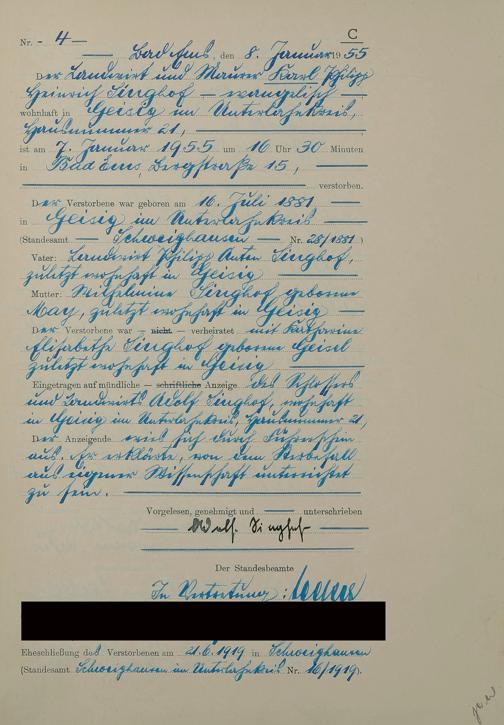 C
Nr. - 4 -
Bad Ems, den 8. Januar 1955
Der Landwirt und Maurer Karl Philipp
Heinrich Singhof - evangelisch -
wohnhaft in Geisig im Unterlahnkreis,
Hausnummer 21,
ist am 7. Januar 1955 um 16 Uhr 30 Minuten
in Bad Ems Bergstraße 15,
verstorben.
Der Verstorbene war geboren am 10. Juli 1881
in Geisig im Unterlahnkreis
(Standesamt - Schweighausen - Nr. 28/1881)
Vater: Landwirt Philipp Anton Singhof,
zuletzt wohnhaft in Geisig
Mutter: Wilhelmine Singhof geborene
May, zuletzt wohnhaft in Geisig -
Der Verstorbene war - nicht - verheiratet mit Katharine
Elisabethe Singhof geborene Geisel
zuletzt wohnhaft in Geisig
Eingetragen auf mündliche - schriftliche Anzeige des Schlossers
und Landwirts Adolf Singhof, wohnhaft
in Geisig im Unterlahnkreis, Hausnummer 21,
Der Anzeigende wies sich durch Führerschein
aus. Er erklärte, von dem Sterbefall
aus eigener Wissenschaft unterrichtet
zu sein.
Vorgelesen, genehmigt und unterschrieben
Adolf Singhof
Der Standesbeamte
In Vertretung:
Eheschließung des Verstorbenen am 21.6.1919 in Schweighausen
(Standesamt Schweighausen im Unterlahnkreis Nr. 16/1919).